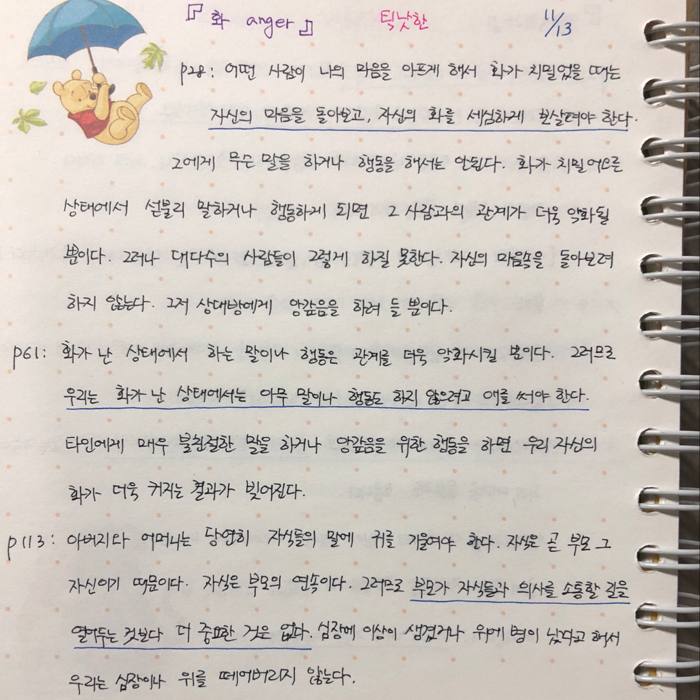 『화 anger』 틱낫한 11/13
p28: 어떤 사람이 나의 마음을 아프게 해서 화가 치밀었을 때는
자신의 마음을 돌아보고, 자신의 화를 세심하게 보살펴야 한다.
그에게 무슨 말을 하거나 행동을 해서는 안된다. 화가 치밀어오른
상태에서 섣불리 말하거나 행동하게 되면 그 사람과의 관계가 더욱 악화될
뿐이다. 그러나 대다수의 사람들이 그렇게 하질 못한다. 자신의 마음속을 돌아보려
하지 않는다. 그저 상대방에게 앙갚음을 하려 들 뿐이다.
p61: 화가 난 상태에서 하는 말이나 행동은 관계를 더욱 악화시킬 뿐이다. 그러므로
우리는 화가 난 상태에서는 아무 말이나 행동도 하지 않으려고 애를 써야 한다.
타인에게 매우 불친절한 말을 하거나 앙갚음을 위한 행동을 하면 우리 자신의
화가 더욱 커지는 결과가 빚어진다.
p113: 아버지다 어머니는 당연히 자식들의 말에 귀를 기울여야 한다. 자식은 곧 부모 그
자신이기 때문이다. 자식은 부모의 연속이다. 그러므로 부모가 자식들과 의사를 소통할 길을
열어두는 것보다 더 중요한 것은 없다. 심장에 이상이 생겼거나 위에 병이 났다고 해서
우리는 심장이나 위를 떼어버리지 않는다.